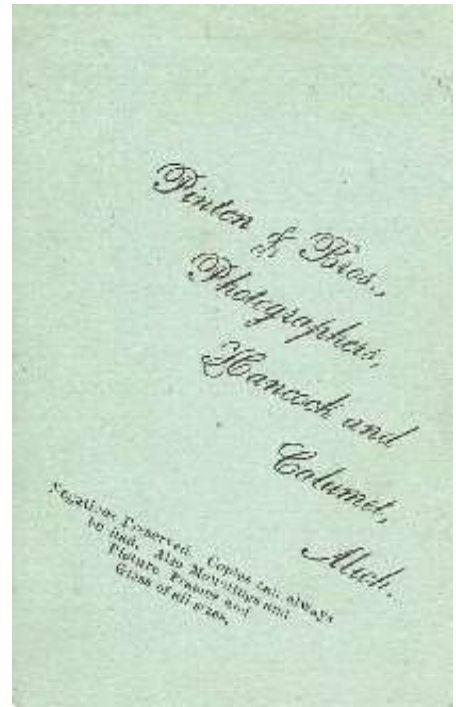 Pinten & Bros.,
Photographers,
Hancock and
Calumet,
Mich.
Negatives Preserved. Copies can always
be had. Also Mountings and
Picture Frames and
Glass of all sizes.